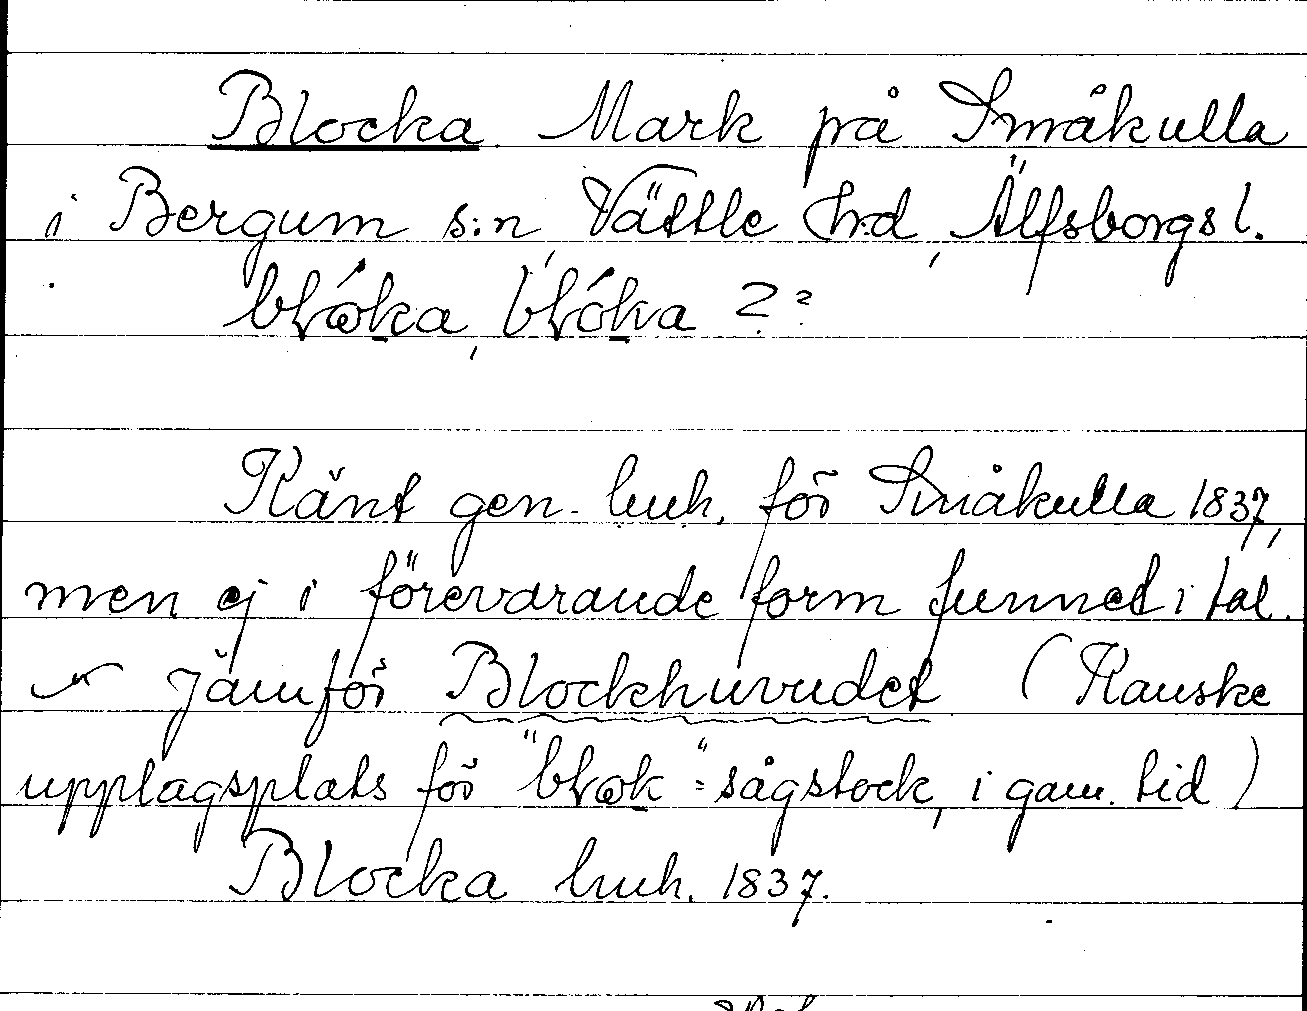 Blocka. Mark på Småkulla
i Bergum s:n, Vättle h:d, Älfsborgs l.
Känt gen. luh. för Småkulla 1837,
men ej i förevarande form funnet i tal.
Jämför Blockhuvudet (Kanske
upplagsplats för "bɫɷk" = sågstock, i gam. tid)
Blocka luh. 1837.